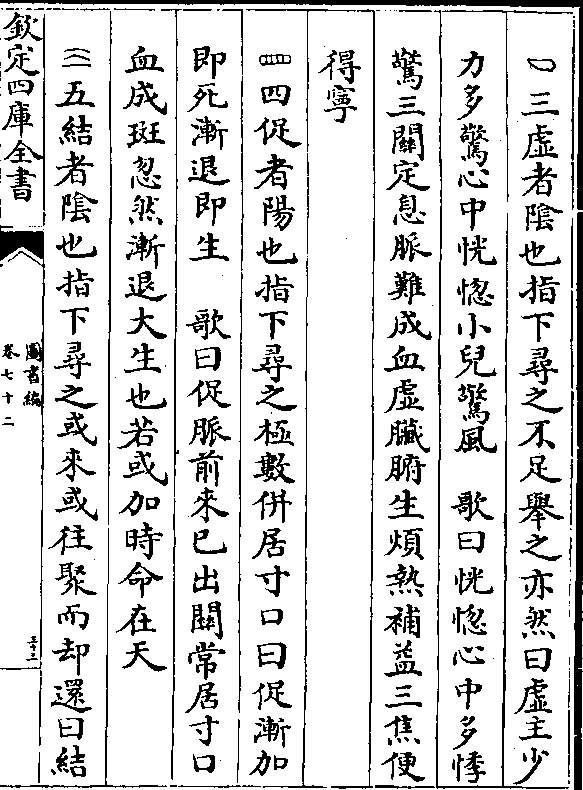 三虛者陰也指下尋之不足舉之亦然曰虛主少
力多驚心中恍惚小兒驚風　歌曰恍惚心中多悸
驚三關定息脈難成血虛臟腑生煩熱補益三焦便
得寧
四促者陽也指下尋之極數併居寸口曰促漸加
即死漸退即生　歌曰促脈前來已出關常居寸口
血成斑忽然漸退大生也若或加時命在天
五結者陰也指下尋之或來或往聚而却還曰結
欽定四庫全書
圖書編
卷七十二
三十三